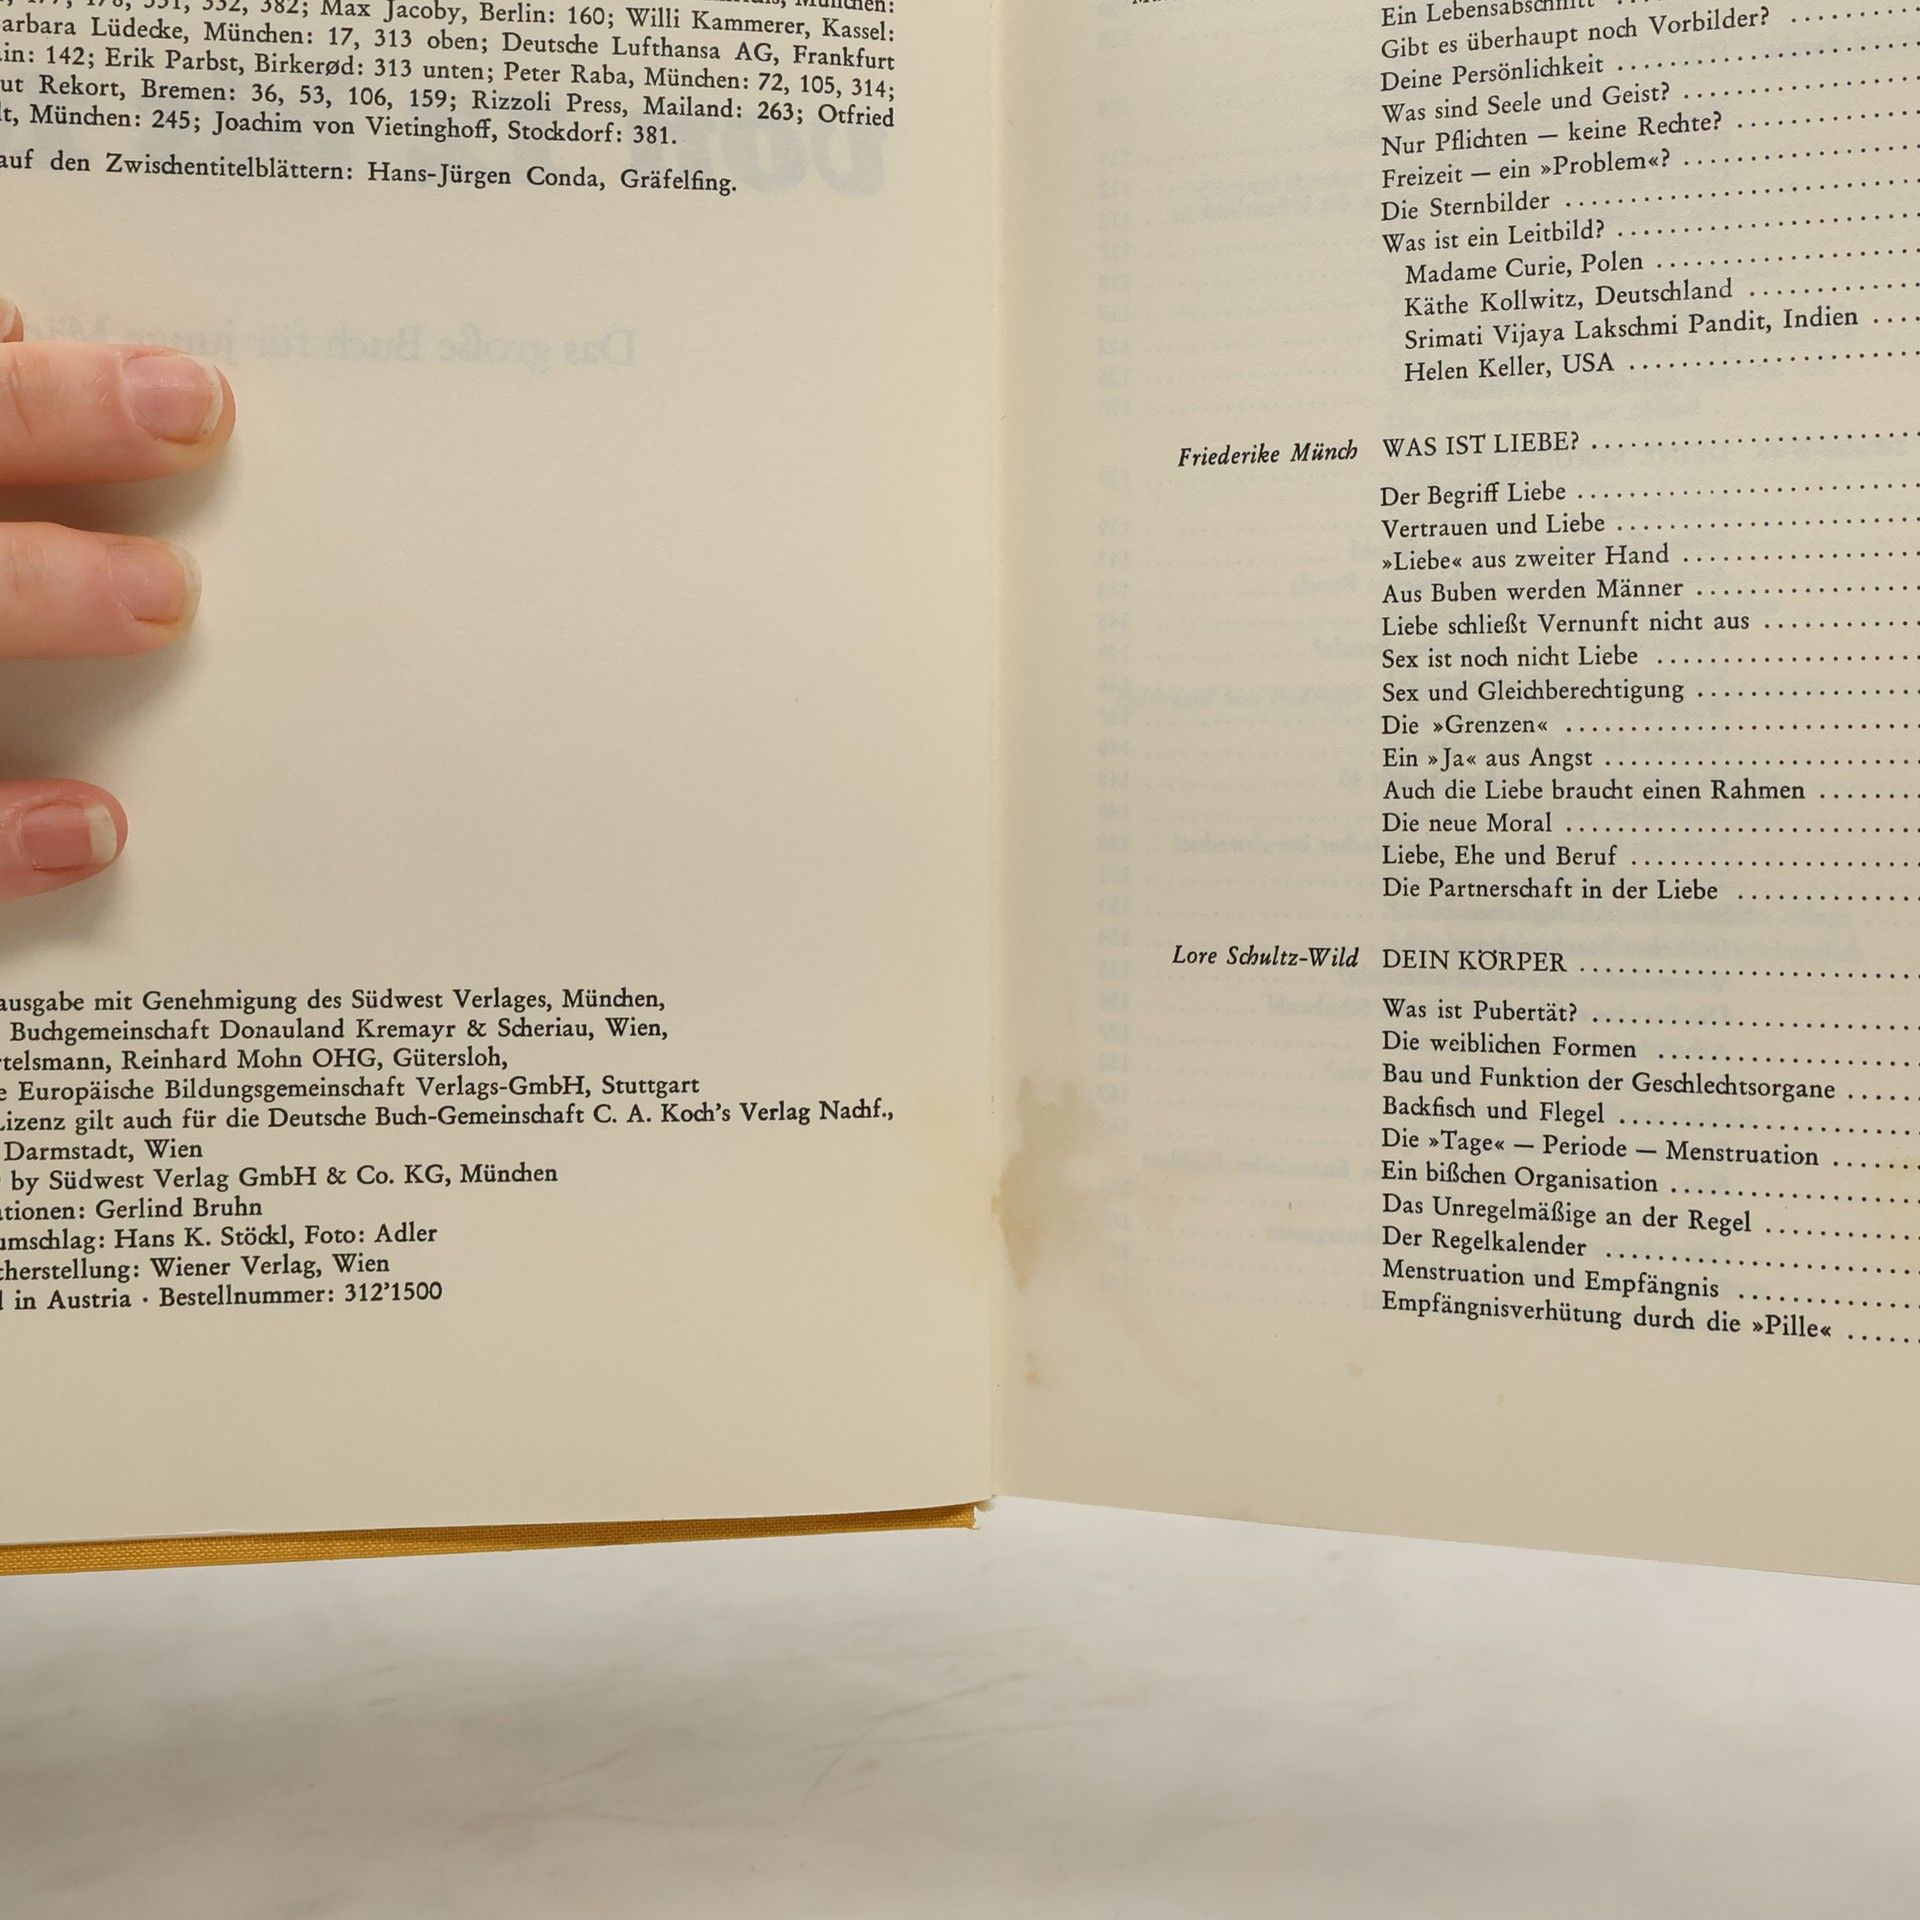 331, 332, 382; Max Jacoby, Berlin: 160; Willi Kammerer, Kassel:
arbara Lüdecke, München: 17, 313 oben; Deutsche Lufthansa AG, Frankfurt
in: 142; Erik Parbst, Birkerød: 313 unten; Peter Raba, München: 72, 105, 314;
ut Rekort, Bremen: 36, 53, 106, 159; Rizzoli Press, Mailand: 263; Otfried
t, München: 245; Joachim von Vietinghoff, Stockdorf: 381.
auf den Zwischentitelblättern: Hans-Jürgen Conda, Gräfelfing.
ausgabe mit Genehmigung des Südwest Verlages, München,
Buchgemeinschaft Donauland Kremayr & Scheriau, Wien,
rtelsmann, Reinhard Mohn OHG, Gütersloh,
e Europäische Bildungsgemeinschaft Verlags-GmbH, Stuttgart
Lizenz gilt auch für die Deutsche Buch-Gemeinschaft C. A. Koch's Verlag Nachf.,
Darmstadt, Wien
by Südwest Verlag GmbH & Co. KG, München
tionen: Gerlind Bruhn
umschlag: Hans K. Stöckl, Foto: Adler
therstellung: Wiener Verlag, Wien
d in Austria · Bestellnummer: 312'1500
Ein Lebensabschnitt
Gibt es überhaupt noch Vorbilder? ..........
Deine Persönlichkeit ....................
Was sind Seele und Geist? ................
Nur Pflichten — keine Rechte? ............
Freizeit — ein »Problem«? ................
Die Sternbilder ........................
Was ist ein Leitbild? ....................
Madame Curie, Polen ..................
Käthe Kollwitz, Deutschland ............
Srimati Vijaya Lakschmi Pandit, Indien ....
Helen Keller, USA ....................
Friederike Münch WAS IST LIEBE? ........................
Der Begriff Liebe ........................
Vertrauen und Liebe .....................
»Liebe« aus zweiter Hand ................
Aus Buben werden Männer ...............
Liebe schließt Vernunft nicht aus ..........
Sex ist noch nicht Liebe ..................
Sex und Gleichberechtigung ...............
Die »Grenzen« ........................
Ein »Ja« aus Angst ......................
Auch die Liebe braucht einen Rahmen ......
Die neue Moral ........................
Liebe, Ehe und Beruf ....................
Die Partnerschaft in der Liebe ............
Lore Schultz-Wild DEIN KÖRPER ........................
Was ist Pubertät? .......................
Die weiblichen Formen ..................
Bau und Funktion der Geschlechtsorgane ....
Backfisch und Flegel .....................
Die »Tage« — Periode — Menstruation .....
Ein bißchen Organisation .................
Das Unregelmäßige an der Regel ..........
Der Regelkalender ......................
Menstruation und Empfängnis ............
Empfängnisverhütung durch die »Pille« .....